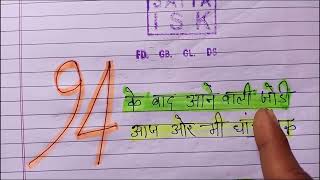 SATTA
ISK
FD. GB. GL. DS
94
के बाद आने वाली जोडी
आज ओर भी